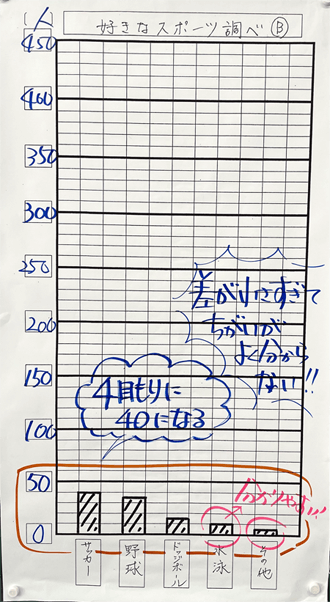 好きなスポーツ調べ Ⓑ
(人
450
400
350
300
250
差が小さすぎて
200
ちがいが
よく分から
ない!!
150
4目もりに
40になる
100
50
分かりやすい!!
0
サッカー
野球
ドッジボール
水泳
その他